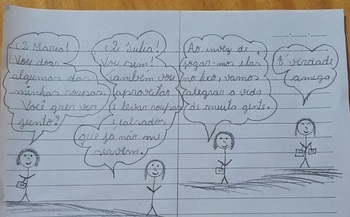 Oi Maria!
Vou doar
algumas das
minhas roupas.
Você quer ver
junto?
Oi Julia!
Vou sim!
também vou
aproveitar
e levar roupas
e calçados
que já não me
servem.
Ao invez de
jogar-mos elas
no lixo, vamos
alegrar a vida
de muita gente.
É verdade
amiga